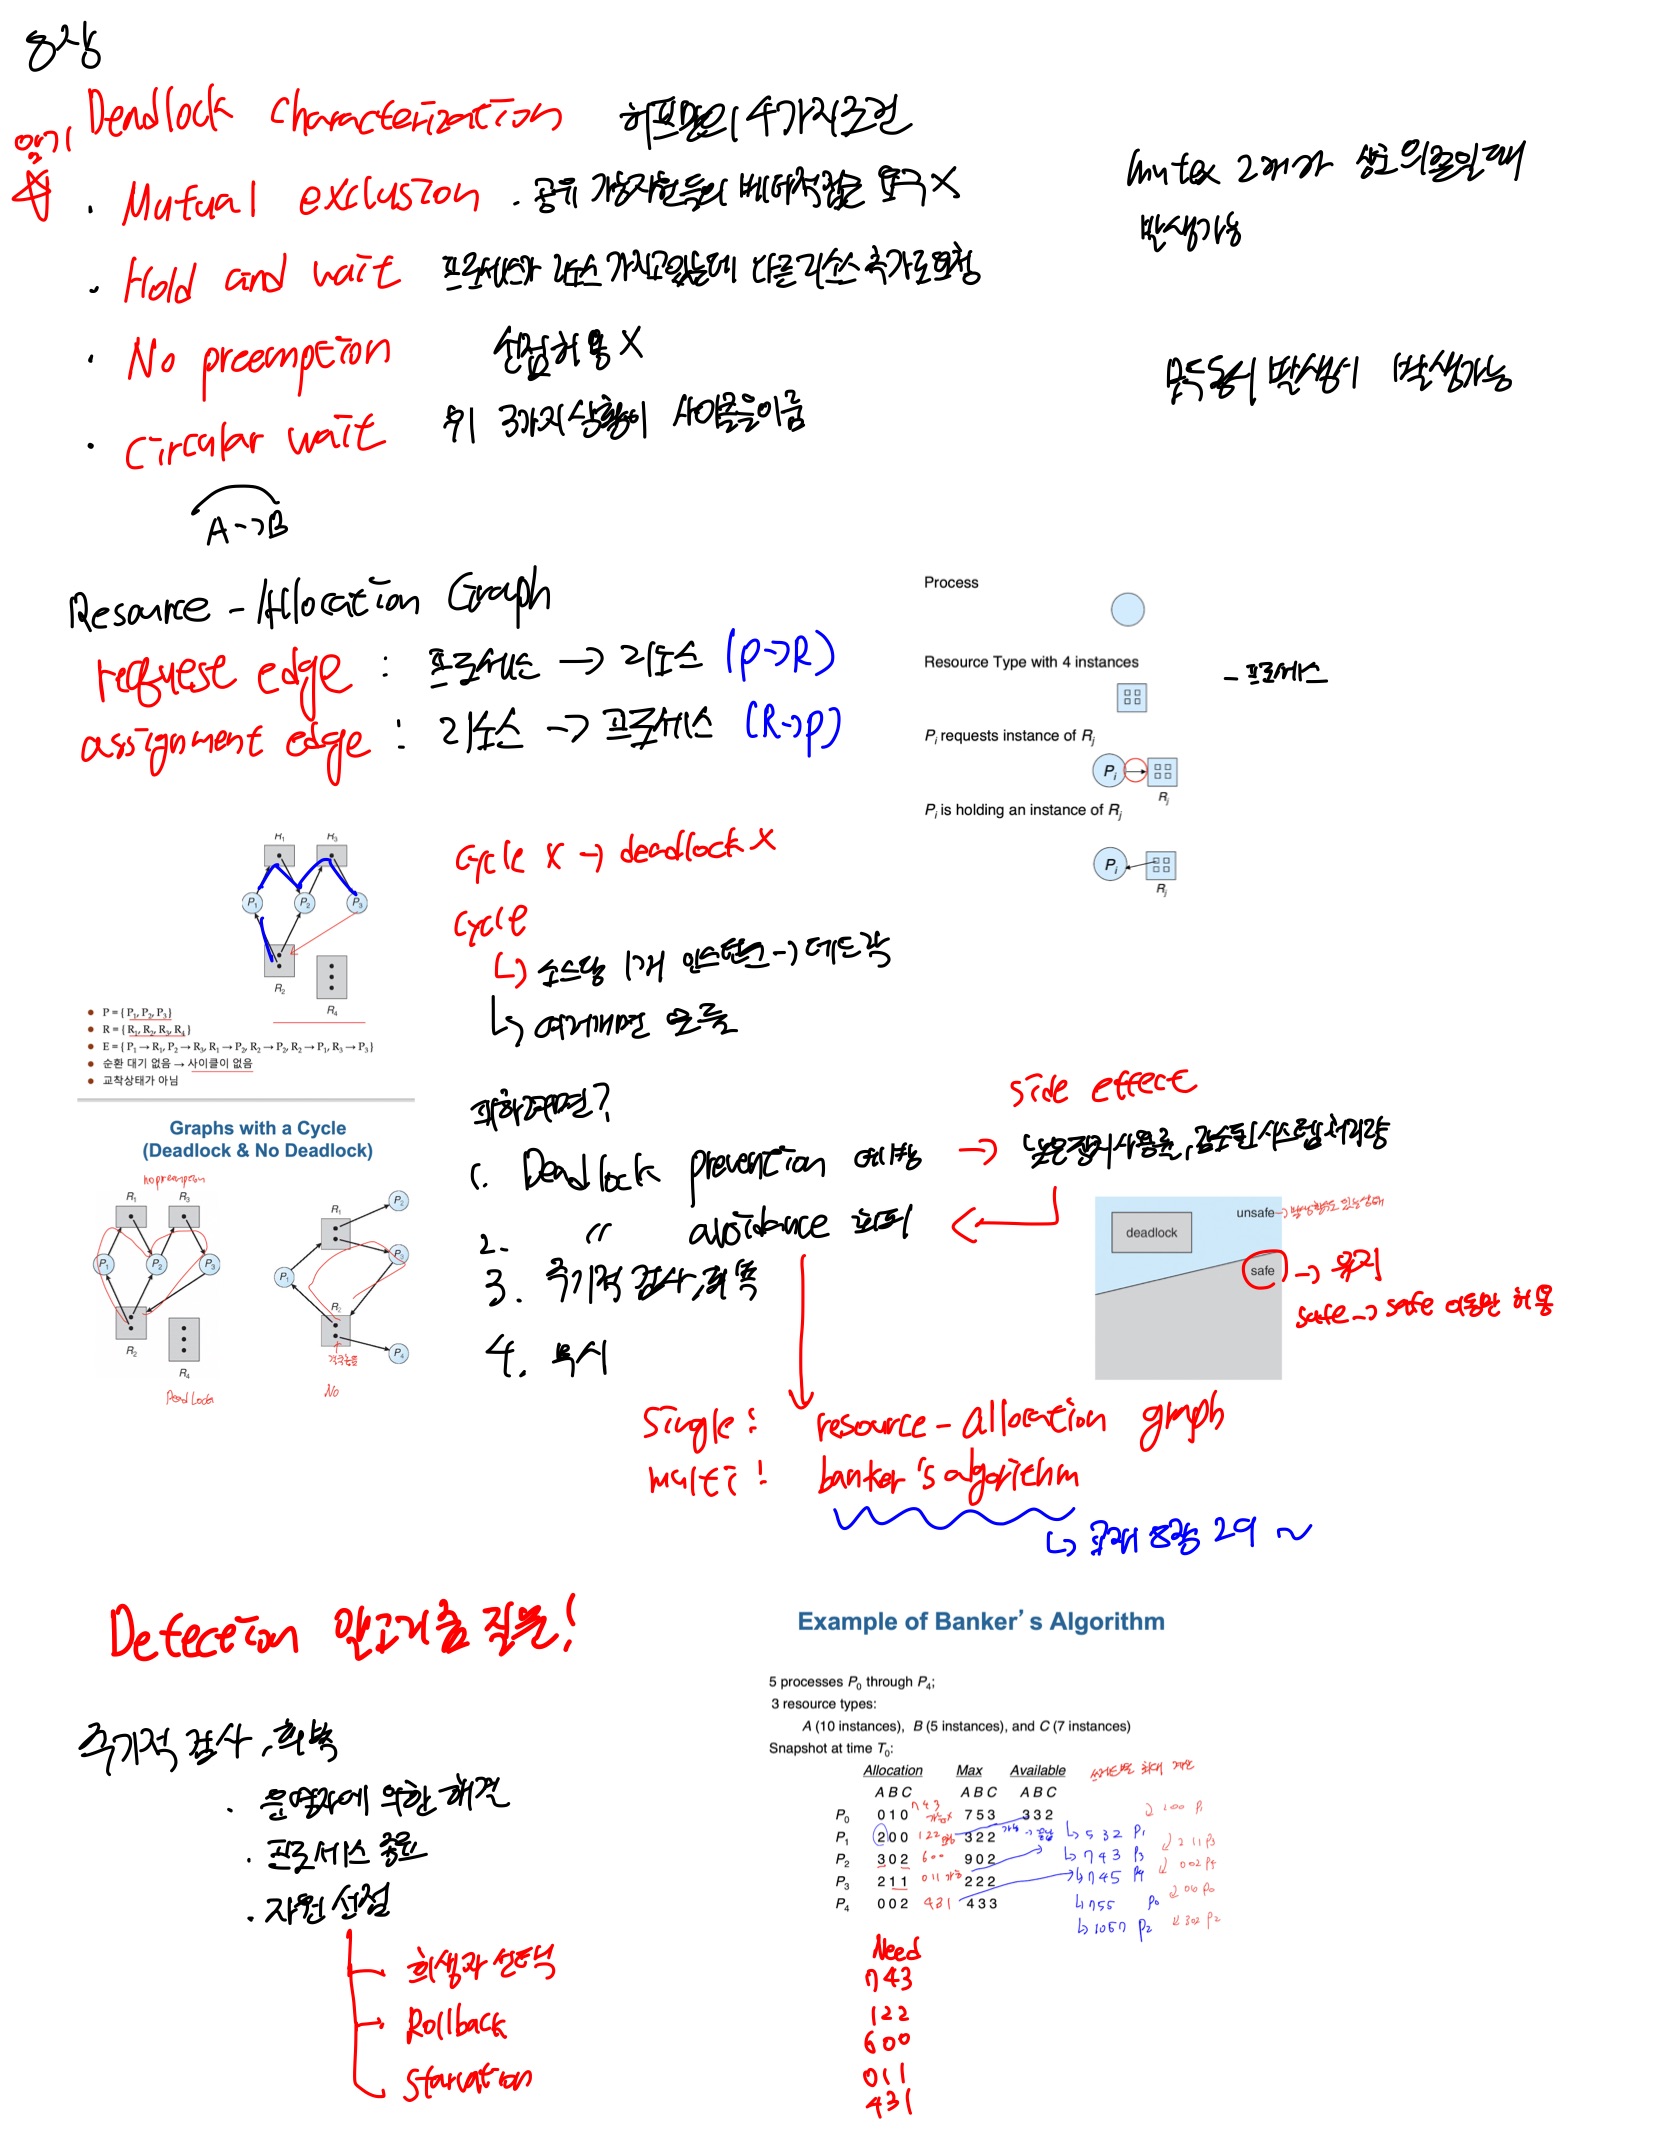 8장
암기
Deadlock Characterization 허프만의 4가지조건
· Mutual exclusion . 공유 가능자원들의 배타적접근 요구 X
mutex 2개가 상호의존일때
발생가능
· Hold and wait 프로세스가 리소스 가지고있는데 다른리소스 추가로요청
· No preemption 선점허용 X
모두동시 발생시 발생가능
· Circular wait 위 3가지상황이 사이클을이룸
A → B
Resource - Allocation Graph
request edge : 프로세스 → 리소스 (P→R)
assignment edge : 리소스 → 프로세스 (R→P)
Process
Resource Type with 4 instances
- 프로세스
Pi requests instance of Rj
Pi
Rj
Pi is holding an instance of Rj
Pi
Rj
R1 R3
P1 P2 P3
R2
R4
• P = { P1, P2, P3}
• R = { R1, R2, R3, R4 }
• E = { P1 → R1, P2 → R3, R1 → P2, R2 → P2, R2 → P1, R3 → P3}
• 순환 대기 없음 → 사이클이 없음
• 교착상태가 아님
Cycle X → deadlock X
Cycle
↳ 소스당 1개 인스턴스 → 데드락
↳ 여러개면 모름
Graphs with a Cycle
(Deadlock & No Deadlock)
no preemption
R1 R3
P1 P2 P3
R2
R4
Dead Lock
R1
P2
P3
P1
R2
P4
No
피하려면?
1. Deadlock prevention 예방 →
side effect
낮은장치사용률, 감소된시스템처리량
2. 〃 avoidance 회피
3. 주기적 검사, 회복
4. 무시
deadlock
unsafe
safe → 유지
safe → safe 이동만 허용
Single : resource - allocation graph
multi : banker's algorithm
↳ 교재 8장 29 ~
Detection 알고리즘 질문!
주기적 검사, 회복
· 운영자에 의한 해결
· 프로세스 종료
· 자원 선점
희생자 선택
Rollback
Starvation
Example of Banker's Algorithm
5 processes P0 through P4;
3 resource types:
A (10 instances), B (5 instances), and C (7 instances)
Snapshot at time T0:
Allocation Max Available
A B C A B C A B C
P0 0 1 0 743 7 5 3 3 3 2
P1 2 0 0 122 3 2 2 ↳ 532 P1
P2 3 0 2 600 9 0 2 ↳ 743 P3
P3 2 1 1 011 2 2 2 ↳ 745 P4
P4 0 0 2 431 4 3 3 ↳ 755 P0
↳ 1057 P2
211 P3
002 P4
302 P2
Need
743
122
600
011
431